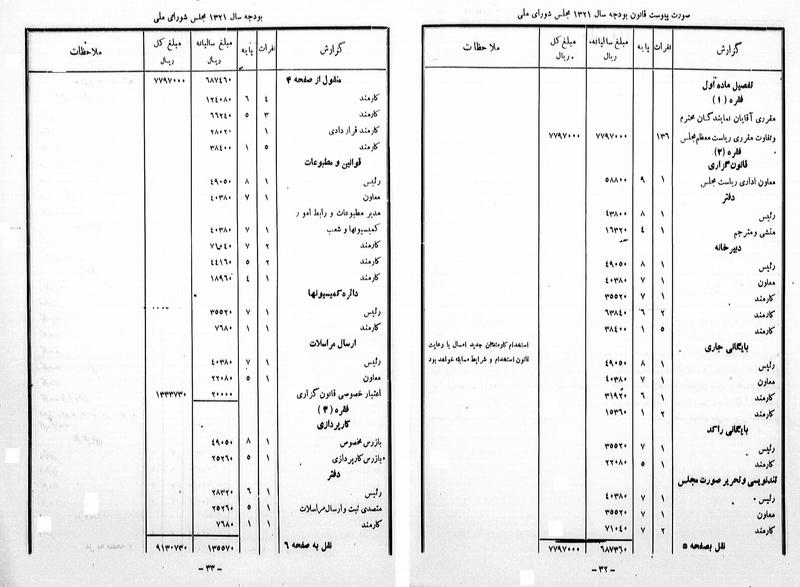 صورت پیوست قانون بودجه سال ۱۳۲۱ مجلس شورای ملی
گزارش پایه نفرات مبلغ سالیانه ریال مبلغ کل ریال ملاحظات
تفصیل ماده اول
فقره (۱)
مقرری آقایان نمایندگان محترم
وتفاوت مقرری ریاست معظم مجلس ۱۳۶ ۷۷۹۷۰۰۰ ۷۷۹۷۰۰۰
فقره (۲)
قانون گزاری
معاون اداری ریاست مجلس ۱ ۹ ۵۸۸۰۰
دفتر
رئیس ۱ ۸ ۴۳۸۰۰
منشی ومترجم ۱ ۴ ۱۶۳۲۰
دبیرخانه
رئیس ۱ ۸ ۴۹۰۵۰
معاون ۱ ۷ ۴۰۳۸۰
کارمند ۱ ۷ ۳۵۵۲۰
کارمند ۲ ۶ ۶۳۸۴۰
کارمند ۵ ۱ ۳۸۴۰۰
بایگانی جاری
استخدام کارمندان جدید امسال با رعایت
قانون استخدام و شرایط مسابقه خواهد بود
رئیس ۱ ۸ ۴۹۰۵۰
معاون ۱ ۷ ۴۰۳۸۰
کارمند ۱ ۶ ۳۱۹۲۰
کارمند ۲ ۱ ۱۵۳۶۰
بایگانی راکد
رئیس ۱ ۷ ۳۵۵۲۰
کارمند ۱ ۵ ۲۲۰۸۰
تندنویسی و تحریر صورت مجلس
رئیس ۱ ۷ ۴۰۳۸۰
معاون ۱ ۷ ۳۵۵۲۰
کارمند ۲ ۷ ۷۱۰۴۰
نقل بصفحه ۵ ۶۸۷۳۶۰ ۷۷۹۷۰۰۰
- ۳۲ -
بودجه سال ۱۳۲۱ مجلس شورای ملی
گزارش پایه نفرات مبلغ سالیانه ریال مبلغ کل ریال ملاحظات
منقول از صفحه ۴ ۶۸۷۴۶۰ ۷۷۹۷۰۰۰
کارمند ۴ ۶ ۱۲۴۰۸۰
کارمند ۳ ۵ ۶۶۲۴۰
کارمند قراردادی ۱ ۲۸۰۲۰
کارمند ۵ ۱ ۳۸۴۰۰
قوانین و مطبوعات
رئیس ۱ ۸ ۴۹۰۵۰
معاون ۱ ۷ ۴۰۳۸۰
مدیر مطبوعات و رابط امور
کمیسیونها و شعب ۱ ۷ ۴۰۳۸۰
کارمند ۲ ۷ ۷۶۰۴۰
کارمند ۲ ۵ ۴۴۱۶۰
کارمند ۱ ۴ ۱۸۹۶۰
دائره کمیسیونها
رئیس ۱ ۷ ۳۵۵۲۰
کارمند ۱ ۱ ۷۶۸۰
ارسال مراسلات
رئیس ۱ ۷ ۴۰۳۸۰
معاون ۱ ۵ ۲۲۰۸۰
اعتبار خصوصی قانون گزاری ۲۰۰۰۰ ۱۳۳۳۷۳۰
فقره (۳)
کارپردازی
بازرس مخصوص ۱ ۸ ۴۹۰۵۰
بازرس کارپردازی ۱ ۵ ۲۵۲۶۰
دفتر
رئیس ۱ ۶ ۲۸۳۲۰
متصدی ثبت و ارسال مراسلات ۱ ۵ ۲۵۲۶۰
کارمند ۱ ۱ ۷۶۸۰
نقل به صفحه ۶ ۱۳۵۵۷۰ ۹۱۳۰۷۳۰
- ۳۳ -